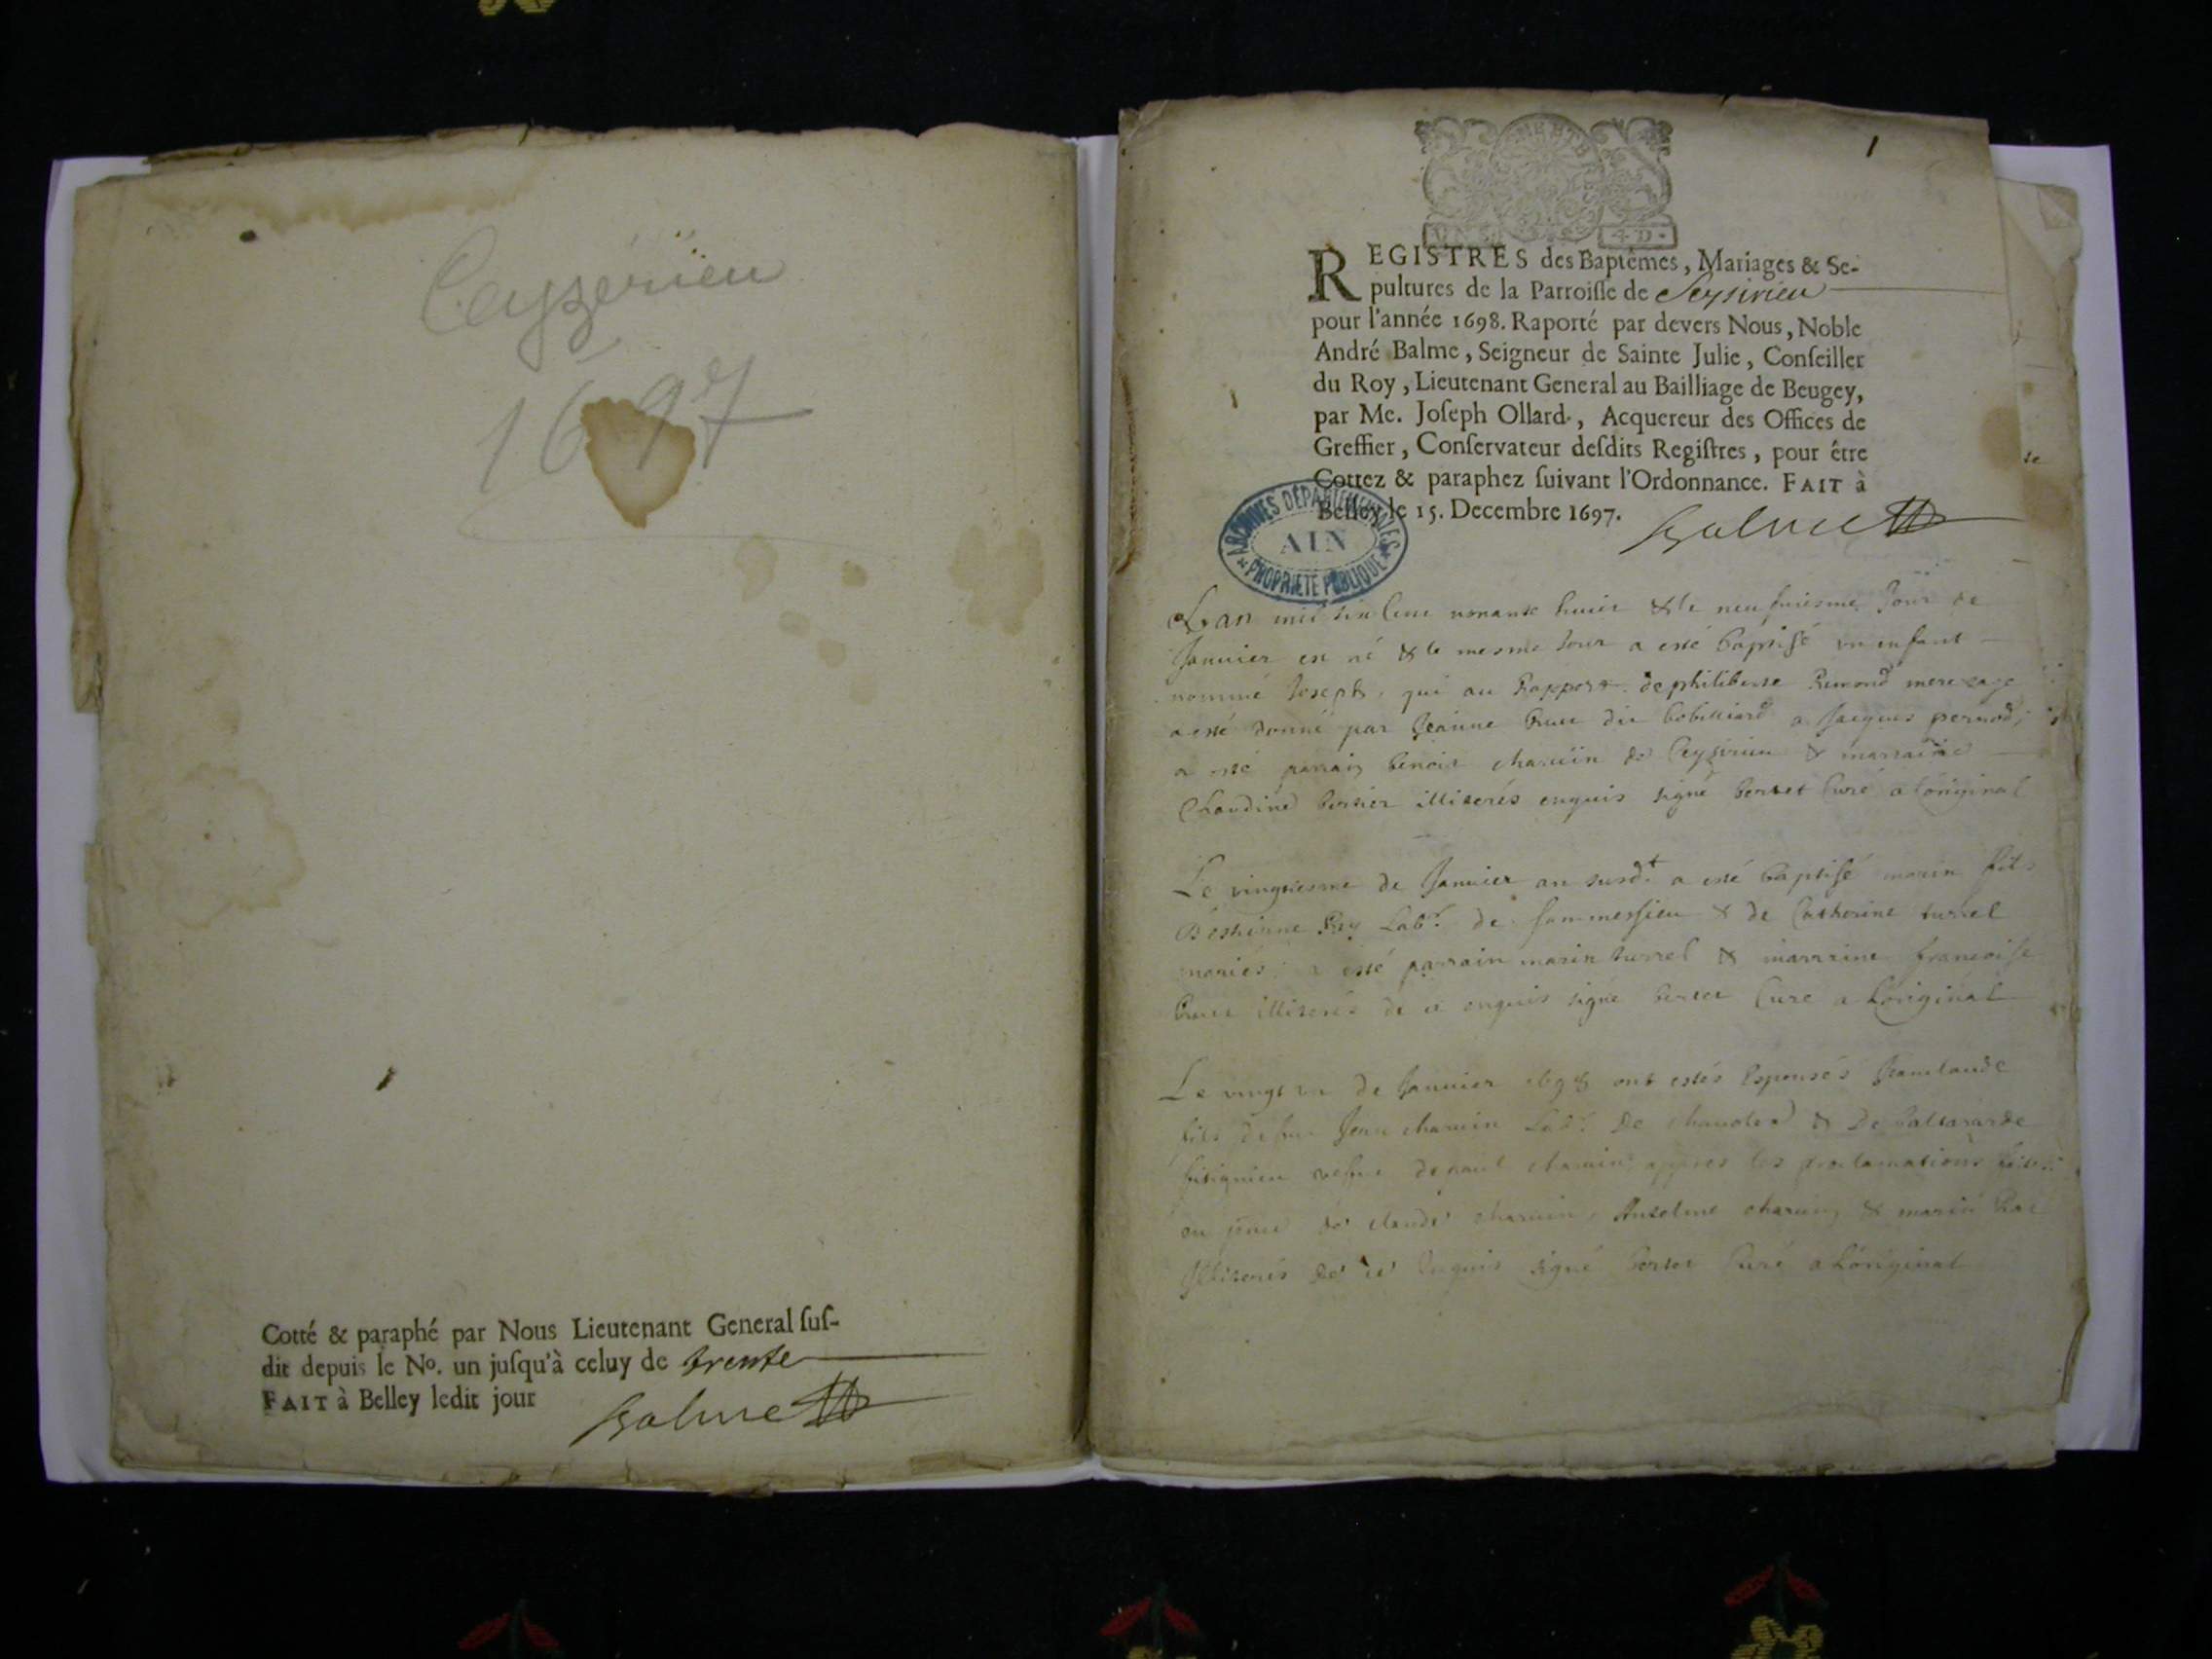 Ceyzerieu
1697
Cotté & paraphé par Nous Lieutenant General suſ-
dit depuis le No. un juſqu'à celuy de trente
FAIT à Belley ledit jour
Balme
1
4 D.
REGISTRES des Baptêmes, Mariages & Se-
pultures de la Parroiſſe de Seysirieu
pour l'année 1698. Raporté par devers Nous, Noble
André Balme, Seigneur de Sainte Julie, Conſeiller
du Roy, Lieutenant General au Bailliage de Beugey,
par Me. Joſeph Ollard, Acquereur des Offices de
Greffier, Conſervateur deſdits Regiſtres, pour être
Cottez & paraphez ſuivant l'Ordonnance. FAIT à
Belley le 15. Decembre 1697.
Balme
ARCHIVES DÉPARTEMENTALES
AIN
PROPRIÉTÉ PUBLIQUE
Lan mil six cens nonante huict & le neufuiesme Jour de
Januier est né & le mesme Jour a esté baptisé un enfant
nommé Joseph, qui au Rapport de philiberte Remond mere sage
a esté donné par Jeanne dit a Jacques pernod,
a esté parrain benoit charuin de Ceysirieu & marraine
Claudine illiterés enquis signé bertet Curé a loriginal
Le vingtiesme de Januier an susdt a esté baptisé marin fils
Destienne Rey Labr. de & de Catherine turrel
mariés, a esté parrain marin turrel & marraine francoise
illiterés de ce enquis signé bertet Curé a Loriginal
Le vingt un de Januier 1698 ont estés Espousés Jeanclaude
fils de feu Jean charuin Labr. De & De baltazarde
vefue de paul charuin, appres les proclamations faites
en pnce de claude charuin, Anselme charuin & marin
Illiterés de ce Enquis signé bertet Curé a Loriginal